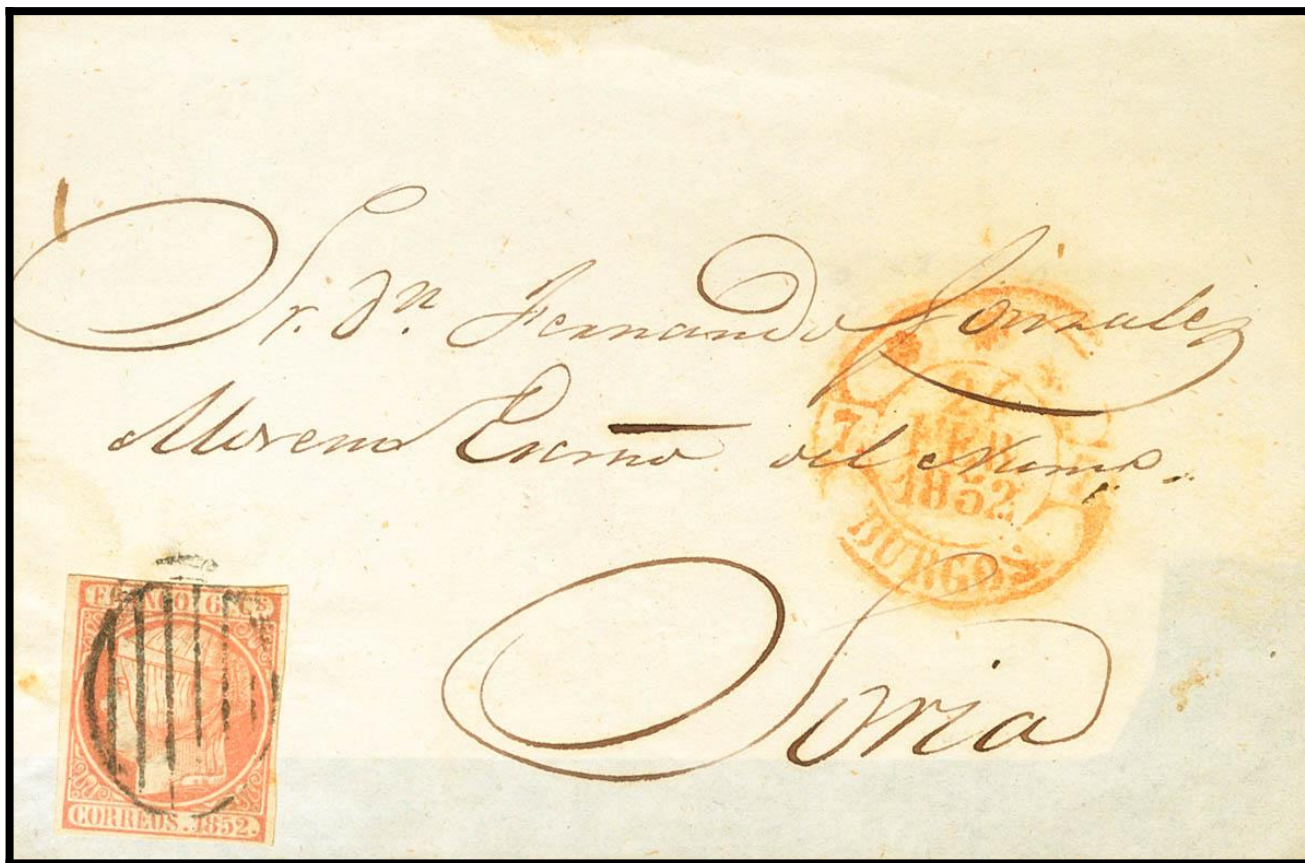 Sr. Dn. Fernando Gonzalez
Moreno Essno del Nume.
Soria
FEB
1852
BURGOS
FRANCO 6 Cs
CORREOS. 1852.